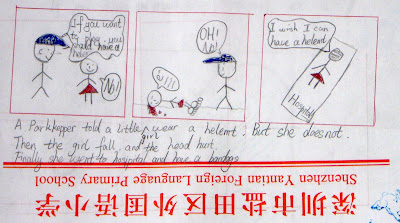 If you want
to play, you
should have a
helemt
No!
OH!
No!
W!!!
I wish I can
have a helemt
Hospital
A Parkkepper told a little girl wear a helemt. But she doesnot.
Then the girl fall and the head hurt.
Finally she went to hospital and have a bandage
Shenzhen Yantian Foreign Language Primary School
深圳市盐田区外国语小学